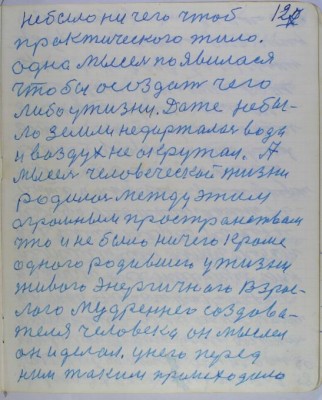 127
небыло ни чего чтоб
практического жило.
одна мысль появилася
чтобы осоздат чего
либо ужизни. Даже небы-
ло земли недержалась вода
и воздух не окружал. А
мысль человеческой жизни
родилась между этим
огромным пространством
что и не было ничего кроме
одного родившего ужизни
живого энергичного взрос-
лого мудреннего создова-
теля человека он мыслел
он и делал. унего перед
ним таким происходило